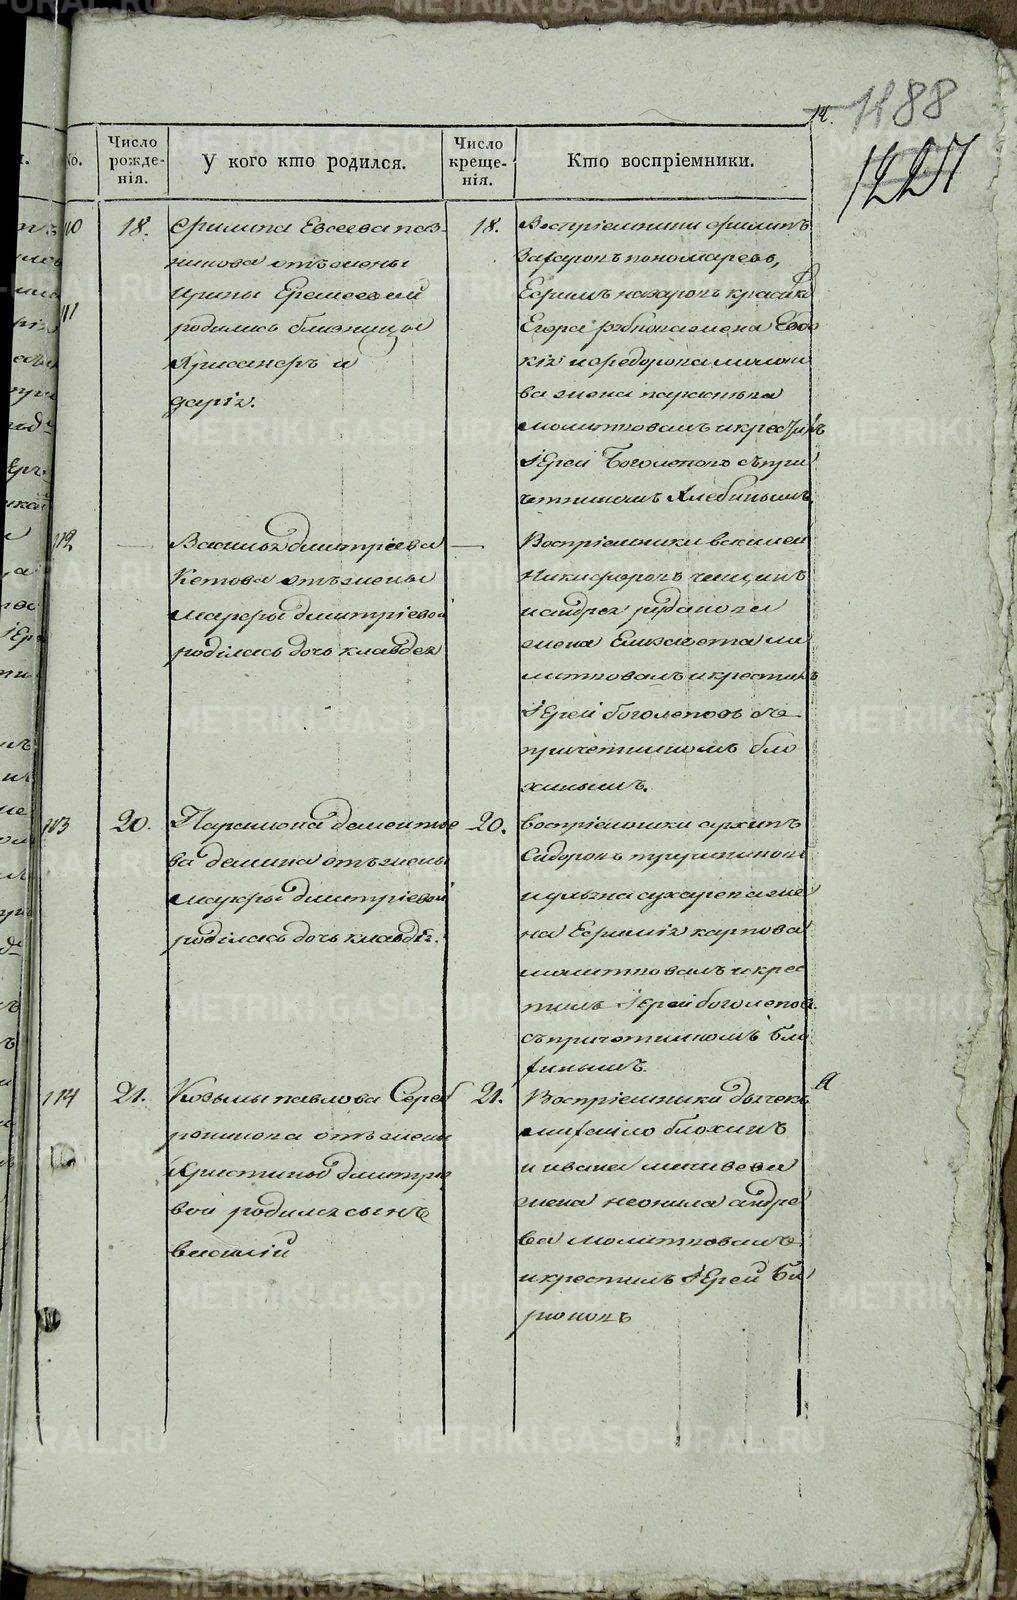 1188
1227
Число рожде-нія.
У кого кто родился.
Число креще-нія.
Кто воспріемники.
110
111
18.
Филипа Евсеева
отъ жены
Ирины Еремеевой
родились близницы
Хрисанфъ и
дарія.
18.
Воспріемники Филипъ
Захаровъ пономаревъ,
Ефимъ назаровъ
Егора жена Евдо
кія и федора
ва жена
молитвовалъ и крестилъ
Іерей Боголеповъ съ при
четникомъ Хлебинымъ.
112
Василья дмитріева
Кетова отъ жены
марфы дмитріевой
роділась дочь клавдея
Воспріемники василей
Никифоровъ
и андрея рудакова
жена Елисавета мо
литвовалъ и крестилъ
Іерей боголеповъ съ
причетникомъ бло
хинымъ.
113
20.
Парамона дементье
ва демина отъ жены
марфы дмитріевой
роділась дочь клавдія.
20.
воспріемники архипъ
Сидоровъ
сухарева же
на Ефимія карпова
молитвовалъ и крес
тилъ Іерей боголеповъ
съ причетникомъ Бло
хинымъ.
114
21.
Козьмы павлова Сереб
реникова отъ жены
Христины дмитріе
вой родился сынъ
василій
21.
Воспріемники дьячекъ
михайло блохинъ
и ивана
жена неонила андре
ва молитвовалъ
и крестилъ Іерей Би
рюковъ
METRIKI.GASO-URAL.RU